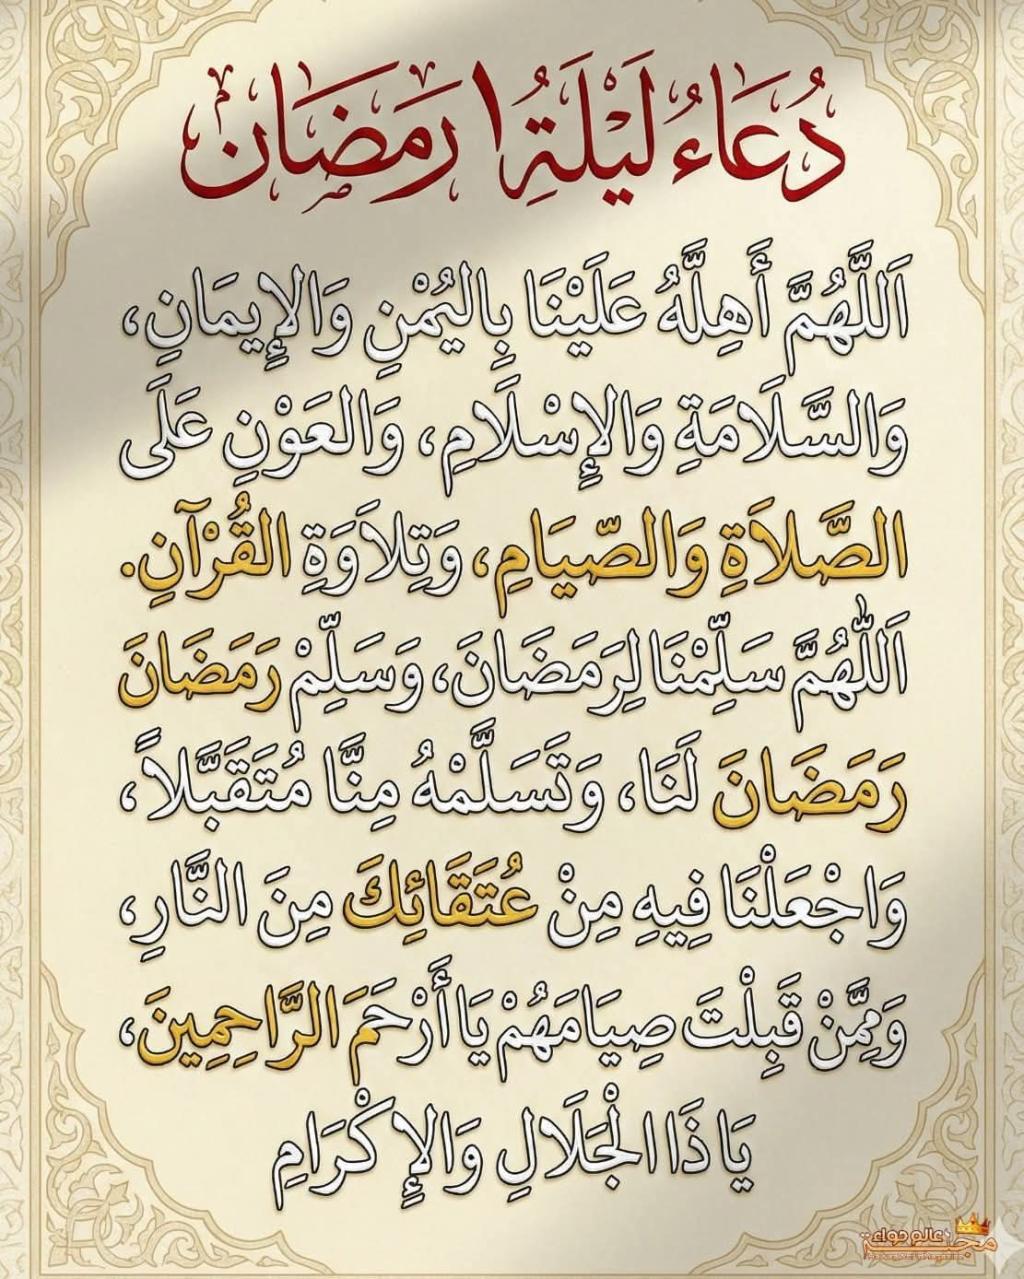 دُعَاءُ لَيْلَةِ ١ رَمَضَان
اَللَّهُمَّ أَهِلَّهُ عَلَيْنَا بِاليُمْنِ وَالإِيمَانِ،
وَالسَّلَامَةِ وَالإِسْلَامِ، وَالعَوْنِ عَلَى
الصَّلاَةِ وَالصِّيَامِ، وَتِلاَوَةِ القُرْآنِ.
اَللّٰهُمَّ سَلِّمْنَا لِرَمَضَانَ، وَسَلِّمْ رَمَضَانَ
رَمَضَانَ لَنَا، وَتَسَلَّمْهُ مِنَّا مُتَقَبَّلاً،
وَاجْعَلْنَا فِيهِ مِنْ عُتَقَائِكَ مِنَ النَّارِ،
وَمِمَّنْ قَبِلْتَ صِيَامَهُمْ يَا أَرْحَمَ الرَّاحِمِينَ،
يَا ذَا الْجَلَالِ وَالإِكْرَامِ
عالم حواء